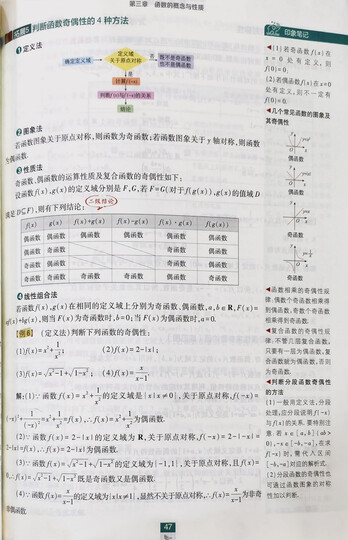 第三章 函数的概念与性质
拓展5 判断函数奇偶性的4种方法
❶定义法
确定定义域
定义域
关于原点对称
否
既不是奇函数
也不是偶函数
是
计算f(-x)
判断f(-x)与f(x)的关系
结论
❷图象法
若函数图象关于原点对称,则函数为奇函数;若函数图象关于y轴对称,则函数
为偶函数.
❸性质法
奇函数、偶函数的运算性质及复合函数的奇偶性如下:
设函数f(x),g(x)的定义域分别是F,G,若F=G(对于f(g(x)),g(x)的值域D
满足D⊆F),则有下列结论:
二级结论
f(x) g(x) f(x)+g(x) f(x)-g(x) f(x)·g(x) f(g(x))
偶函数 偶函数 偶函数 偶函数 偶函数 偶函数
偶函数 奇函数 奇函数 偶函数
奇函数 偶函数 奇函数 偶函数
奇函数 奇函数 奇函数 奇函数 偶函数 奇函数
❹线性组合法
若函数f(x),g(x)在相同的定义域上分别为奇函数、偶函数,a,b∈R,F(x)=
af(x)+bg(x),则当F(x)为奇函数时,b=0;当F(x)为偶函数时,a=0.
【例6】 (定义法)判断下列函数的奇偶性:
(1)f(x)=x²+1/x²; (2)f(x)=2-|x|;
(3)f(x)=√(x²-1)+√(1-x²); (4)f(x)=x/(x-1).
解:(1)∵函数f(x)=x²+1/x²的定义域是{x|x≠0},关于原点对称,f(-x)=
(-x)²+1/(-x)²=x²+1/x²=f(x),∴f(x)=x²+1/x²为偶函数.
(2)∵函数f(x)=2-|x|的定义域为R,关于原点对称,f(-x)=2-|-x|=
2-|x|=f(x),∴f(x)=2-|x|为偶函数.
(3)∵函数f(x)=√(x²-1)+√(1-x²)的定义域为{-1,1},关于原点对称,且f(x)=
0,∴f(x)=√(x²-1)+√(1-x²)既是奇函数又是偶函数.
(4)∵函数f(x)=x/(x-1)的定义域为{x|x≠1},显然不关于原点对称,∴f(x)=x/(x-1)为非奇
非偶函数.
印象笔记
◀(1)若奇函数f(x)在
x=0处有定义,则
f(0)=0.
(2)若偶函数f(x)在x=0
处有定义,则不一定有
f(0)=0.
◀几个常见函数的图象及
其奇偶性
偶函数
奇函数
奇函数
偶函数
◀函数相乘的奇偶性规
律:偶数个奇函数相乘得
到偶函数,奇数个奇函数
相乘得到奇函数.
◀复合函数的奇偶性规
律:不管几层复合函数,
只要有一层为偶函数,复
合函数就为偶函数,否则
为奇函数.
◀判断分段函数奇偶性
的方法
(1)一般用定义法,分段
处理,应分段说明f(-x)
与f(x)的关系.要特别注
意:若x∈[a,b](ab>
0),-x∈[-b,-a],在求
f(-x)时,需代入区间
[-b,-a]对应的解析式.
(2)分段函数的奇偶性也
可通过函数图象的对称
性加以判断.
47